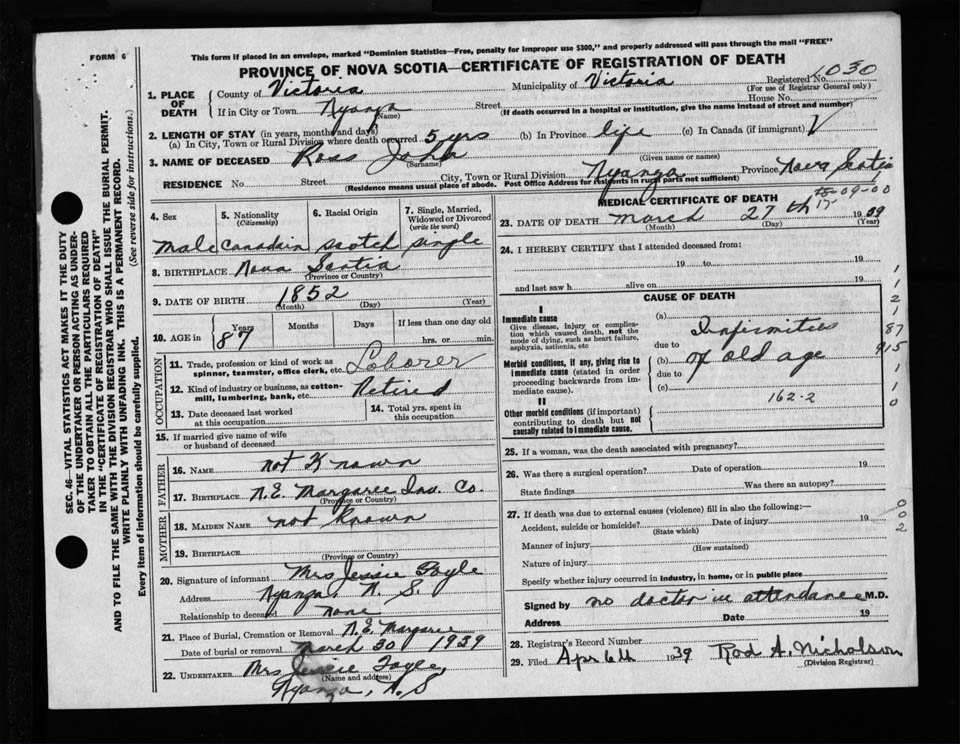 FORM 6
This form if placed in an envelope, marked "Dominion Statistics—Free, penalty for improper use $300," and properly addressed will pass through the mail "FREE"
PROVINCE OF NOVA SCOTIA—CERTIFICATE OF REGISTRATION OF DEATH
Registered No. 1030
(For use of Registrar General only)
1. PLACE OF DEATH
County of Victoria Municipality of Victoria
If in City or Town Nyanza Street House No.
(Name) (If death occurred in a hospital or institution, give the name instead of street and number)
2. LENGTH OF STAY (in years, months and days)
(a) In City, Town or Rural Division where death occurred 5 yrs (b) In Province life (c) In Canada (if immigrant) V
3. NAME OF DECEASED Ross John
(Surname) (Given name or names)
RESIDENCE No. Street City, Town or Rural Division Nyanza Province Nova Scotia
(Residence means usual place of abode. Post Office Address for residents in rural parts not sufficient)
4. Sex
5. Nationality (Citizenship)
6. Racial Origin
7. Single, Married, Widowed or Divorced (write the word)
male Canadain scotch single
8. BIRTHPLACE Nova Scotia
(Province or Country)
9. DATE OF BIRTH 1852
(Month) (Day) (Year)
10. AGE in Years Months Days If less than one day old
87 hrs. or min.
OCCUPATION
11. Trade, profession or kind of work as spinner, teamster, office clerk, etc. Laborer
12. Kind of industry or business, as cotton-mill, lumbering, bank, etc. Retired
13. Date deceased last worked at this occupation
14. Total yrs. spent in this occupation
15. If married give name of wife or husband of deceased
FATHER
16. NAME not Known
17. BIRTHPLACE N.E. Margaree Inv. Co.
(Province or Country)
MOTHER
18. MAIDEN NAME not known
19. BIRTHPLACE
(Province or Country)
20. Signature of informant Mrs Jessie Foyle
Address Nyanza, N. S.
Relationship to deceased none
21. Place of Burial, Cremation or Removal N.E. Margaree
Date of burial or removal March 30 1939
22. UNDERTAKER Mrs Jessie Foyle,
(Name and address)
Nyanza, N. S
MEDICAL CERTIFICATE OF DEATH
23. DATE OF DEATH march 27th 1939
(Month) (Day) (Year)
24. I HEREBY CERTIFY that I attended deceased from:
19 to 19
and last saw h alive on 19
CAUSE OF DEATH
I
Immediate cause
Give disease, injury or complication which caused death, not the mode of dying, such as heart failure, asphyxia, asthenia, etc
Morbid conditions, if any, giving rise to immediate cause (stated in order proceeding backwards from immediate cause).
II
Other morbid conditions (if important) contributing to death but not causally related to immediate cause.
(a) Infirmities
due to
(b) of old age
due to
(c)
162-2
1
2
1
87
915
1
1
0
25. If a woman, was the death associated with pregnancy?
26. Was there a surgical operation? Date of operation 19
State findings Was there an autopsy?
27. If death was due to external causes (violence) fill in also the following:—
Accident, suicide or homicide? Date of injury 19
(State which)
Manner of injury
(How sustained)
Nature of injury
Specify whether injury occurred in industry, in home, or in public place
0
0
2
Signed by no doctor in attendance M.D.
Address Date 19
28. Registrar's Record Number
29. Filed Apr 6th 1939 Rod A. Nicholson
(Division Registrar)
SEC. 46—VITAL STATISTICS ACT MAKES IT THE DUTY
OF THE UNDERTAKER OR PERSON ACTING AS UNDER-
TAKER TO OBTAIN ALL THE PARTICULARS REQUIRED
IN THE "CERTIFICATE OF REGISTRATION OF DEATH"
AND TO FILE THE SAME WITH THE DIVISION REGISTRAR WHO SHALL ISSUE THE BURIAL PERMIT.
WRITE PLAINLY WITH UNFADING INK. THIS IS A PERMANENT RECORD.
Every item of information should be carefully supplied. (See reverse side for instructions.)